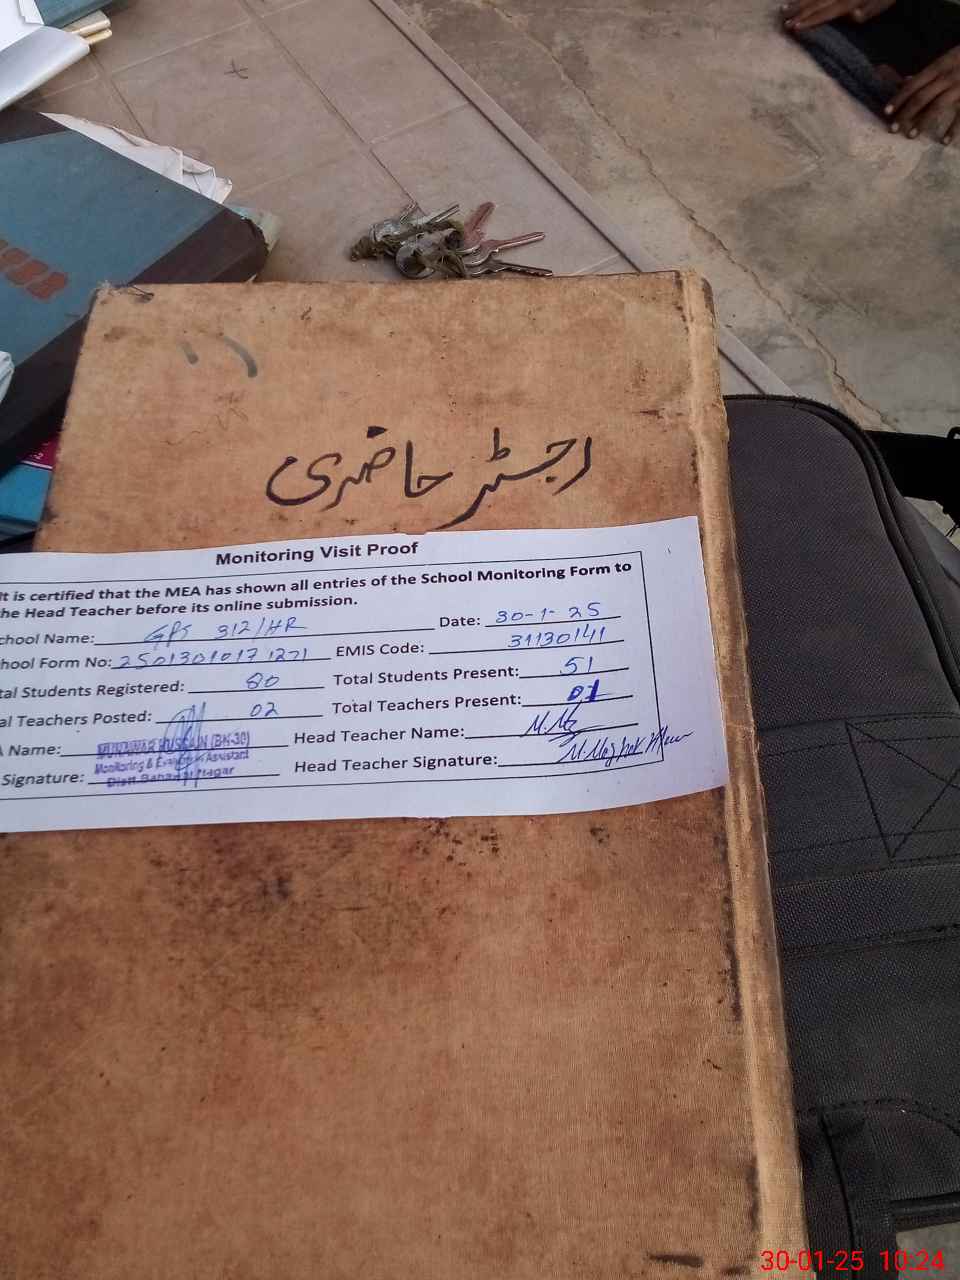 رجسٹر حاضری
Monitoring Visit Proof
It is certified that the MEA has shown all entries of the School Monitoring Form to
the Head Teacher before its online submission.
chool Name: GPS 312/HR Date: 30-1-25
hool Form No: EMIS Code: 31130141
tal Students Registered: 80 Total Students Present: 51
al Teachers Posted: 02 Total Teachers Present: 01
A Name: MUNAWAR HUSSAIN (BK-30) Head Teacher Name:
Monitoring & Evaluation Assistant
Signature: Distt. Bahawalnagar Head Teacher Signature:
30-01-25 10:24